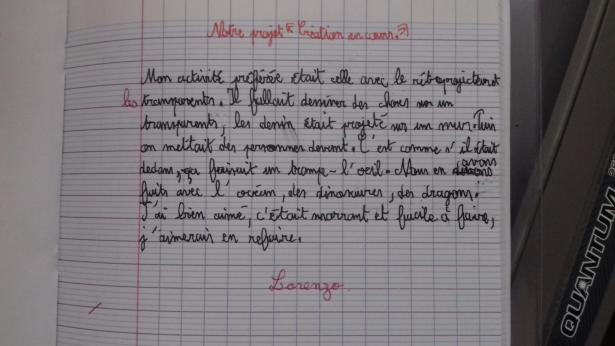 Notre projet « Création en cours. »
Mon activité préférée était celle avec le rétroprojecteur et
les transparents. Il fallait dessiner des choses sur un
transparents, les dessin était projeté sur un mur. Puis
on mettait des personnes devant. C'est comme s'il était
dedans, ça faisait un trompe-l'oeil. Nous en avons
faits avec l'océan, des dinosaures, des dragons.
J'ai bien aimé, c'était marrant et facile à faire,
j'aimerais en refaire.
Lorenzo.
QUANTUM